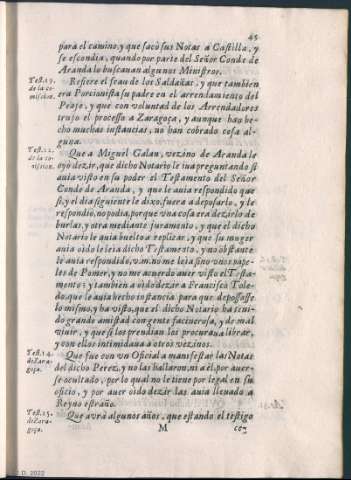 45
para el camino, y que sacò sus Notas a Castilla, y
se escondia, quando por parte del Señor Conde de
Aranda lo buscauan algunos Ministros.
Test.19.
de la co-
mission.
Refiere el fean de los Saldañas, y que tambien
era Porcionista su padre en el arrendamiento del
Peaje, y que con voluntad de los Arrendadores
trujo el processo a Zaragoça, y aunque han he-
cho muchas instancias, no han cobrado cosa al-
guna.
Test.22.
de la co-
mission.
Que a Miguel Galan, vezino de Aranda le
oyò dezir, que dicho Notario le iua preguntando si
auia visto en su poder el Testamento del Señor
Conde de Aranda, y que le auia respondido que
si, y el dia siguiente le dixo, fuera a deposarlo, y le
respondiò, no podia, porque vna cosa era dezirlo de
burlas, y otra mediante juramento, y que el dicho
Notario le auia buelto a replicar, y que su muger
auia oido le leia dicho Testamento, y no obstante
le auia respondido, v.m. no me leia sino vnos pape-
les de Pomer, y no me acuerdo auer visto el Testa-
mento; y tambien a oido dezir a Francisco Tole-
do, que le auia hecho instancia para que depossasse
lo mismo, y ha visto, que el dicho Notario ha teni-
do grande amistad con gente facinerosa, y de mal
viuir, y que si los prendian los procuraua librar,
y con ellos intimidaua a otros vezinos.
Test.14.
de Zara-
goça.
Que fue con vn Oficial a manifestar las Notas
del dicho Perez, y no las hallaron, ni a èl, por auer-
se ocultado, por lo qual no le tiene por legal en su
oficio, y por auer oido dezir las auia lleuado a
Reyno estraño.
Test.15.
de Zara-
goça.
Que avrà algunos años, que estando el testigo
M
con
D. 2022